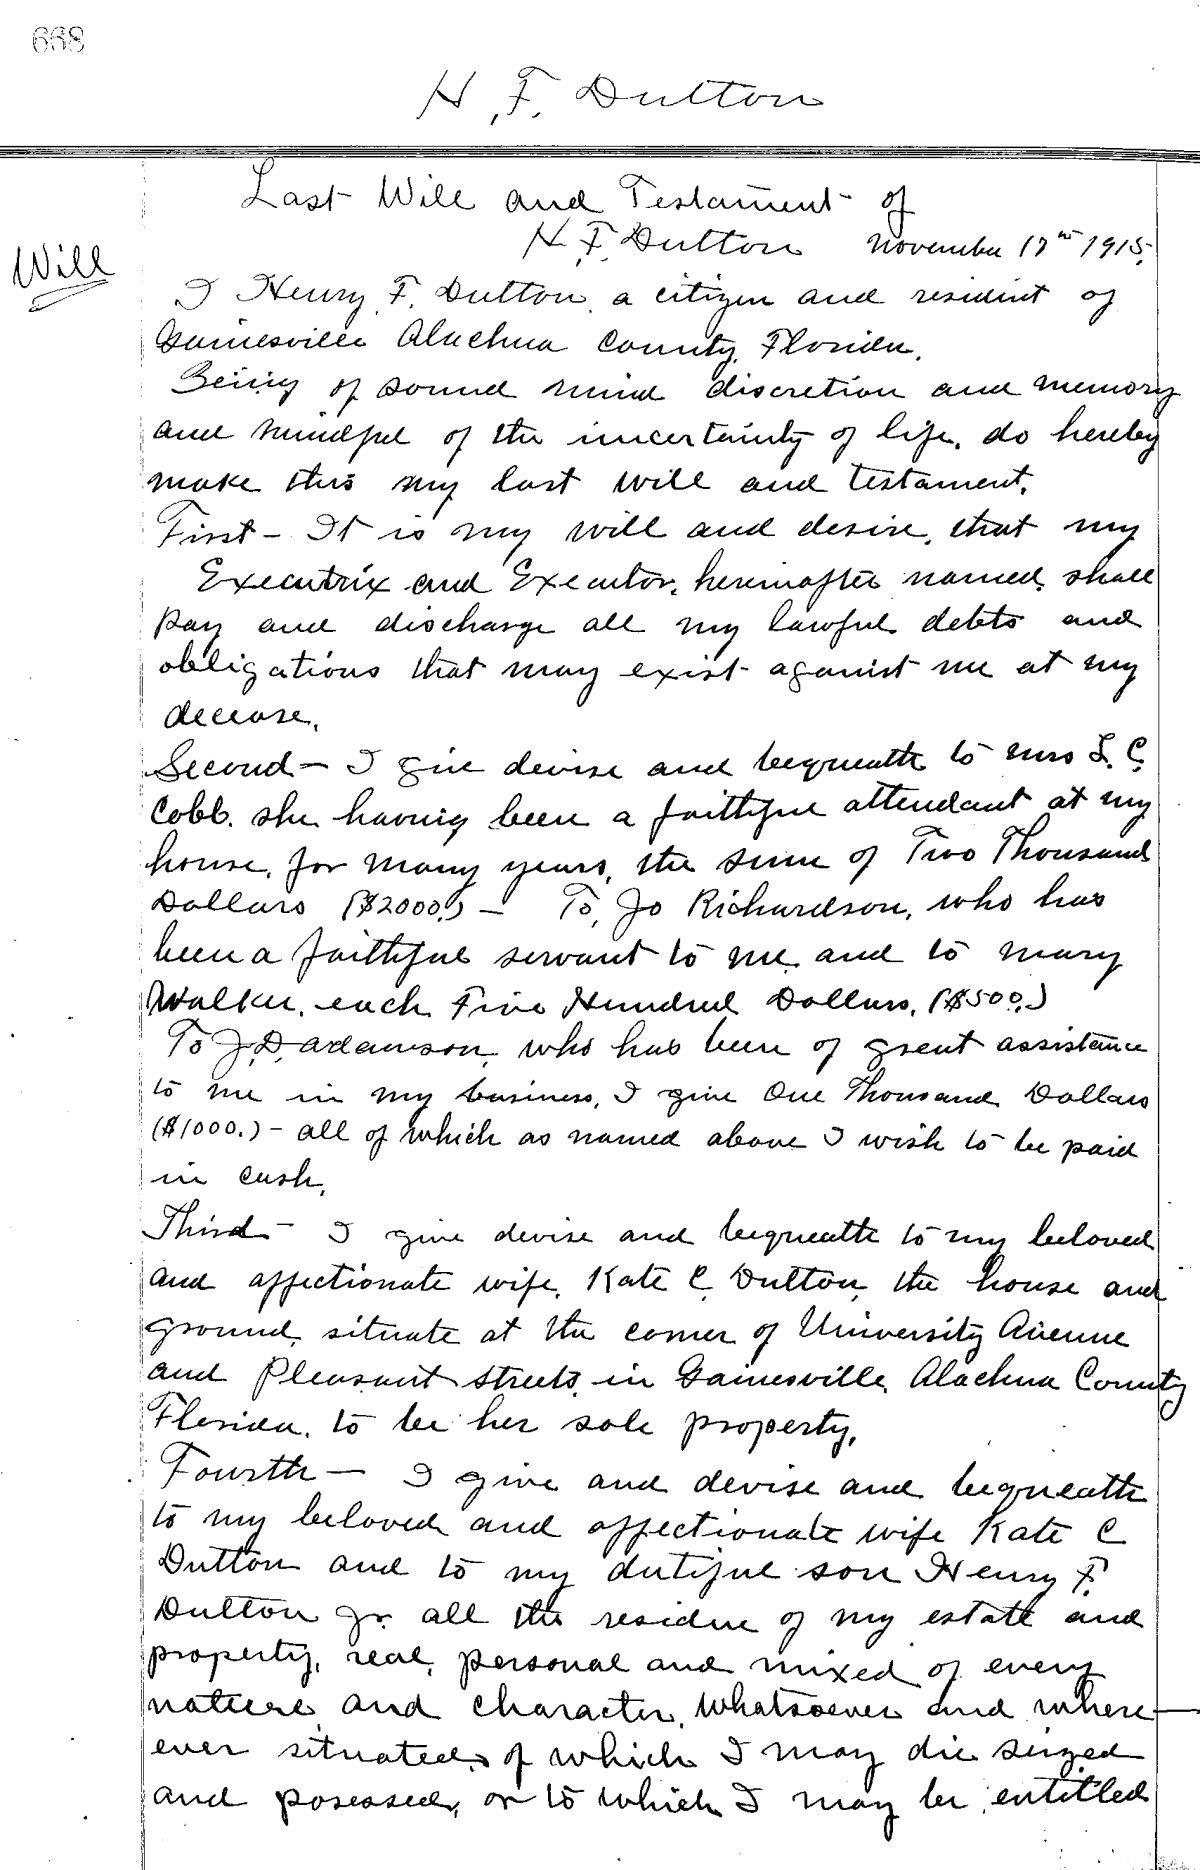 668
H. F. Dutton
Last Will and Testament of
H. F. Dutton November 17th 1915.
Will
I Henry F. Dutton, a citizen and resident of
Gainesville Alachua County, Florida.
Being of sound mind discretion and memory
and mindful of the uncertainty of life, do hereby
make this my last will and testament.
First - It is my will and desire, that my
Executrix and Executor, hereinafter named, shall
pay and discharge all my lawful debts and
obligations that may exist against me at my
decease.
Second - I give devise and bequeath to Mrs L. C.
Cobb, she having been a faithful attendant at my
house, for many years, the sum of Two Thousand
Dollars ($2000.) - To, Jo Richardson, who has
been a faithful servant to me, and to Mary
Walker, each Five Hundred Dollars, ($500.)
To J. D. Adamson, who has been of great assistance
to me in my business, I give One Thousand Dollars
($1000.) - all of which as named above I wish to be paid
in cash.
Third - I give devise and bequeath to my beloved
and affectionate wife, Kate C. Dutton, the house and
ground, situate at the corner of University Avenue
and Pleasant streets, in Gainesville, Alachua County
Florida, to be her sole property.
Fourth - I give and devise and bequeath
to my beloved and affectionate wife Kate C
Dutton and to my dutiful son Henry F.
Dutton Jr. all the residue of my estate and
property, real, personal and mixed of every
nature and character, whatsoever and where-
ever situated, of which I may die seized
and posessed, or to which I may be entitled